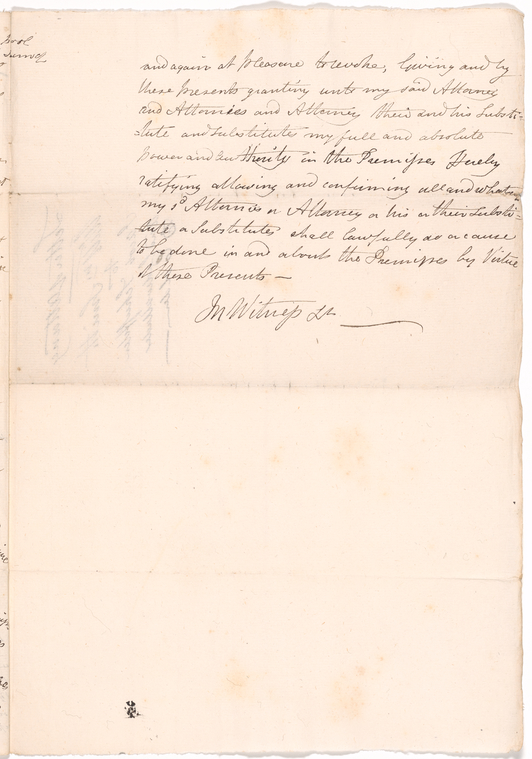 and again at Pleasure to revoke, Giving and by
these Presents granting unto my said Attorney
and Attornies and Attorney their and his Substi-
=tute and Substitutes my full and absolute
Power and Authority in the Premises Hereby
ratifying allowing and confirming all and whats
my sd Attornies or Attorney or his or their Substi-
tute or Substitutes shall lawfully do or cause
to be done in and about the Premises by Virtue
of these Presents —
In Witness &c